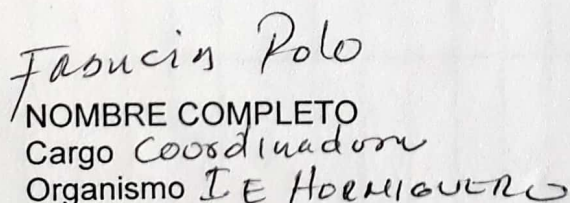 Fabucia Polo
NOMBRE COMPLETO
Cargo Coordinadora
Organismo I E HORMIGUERO